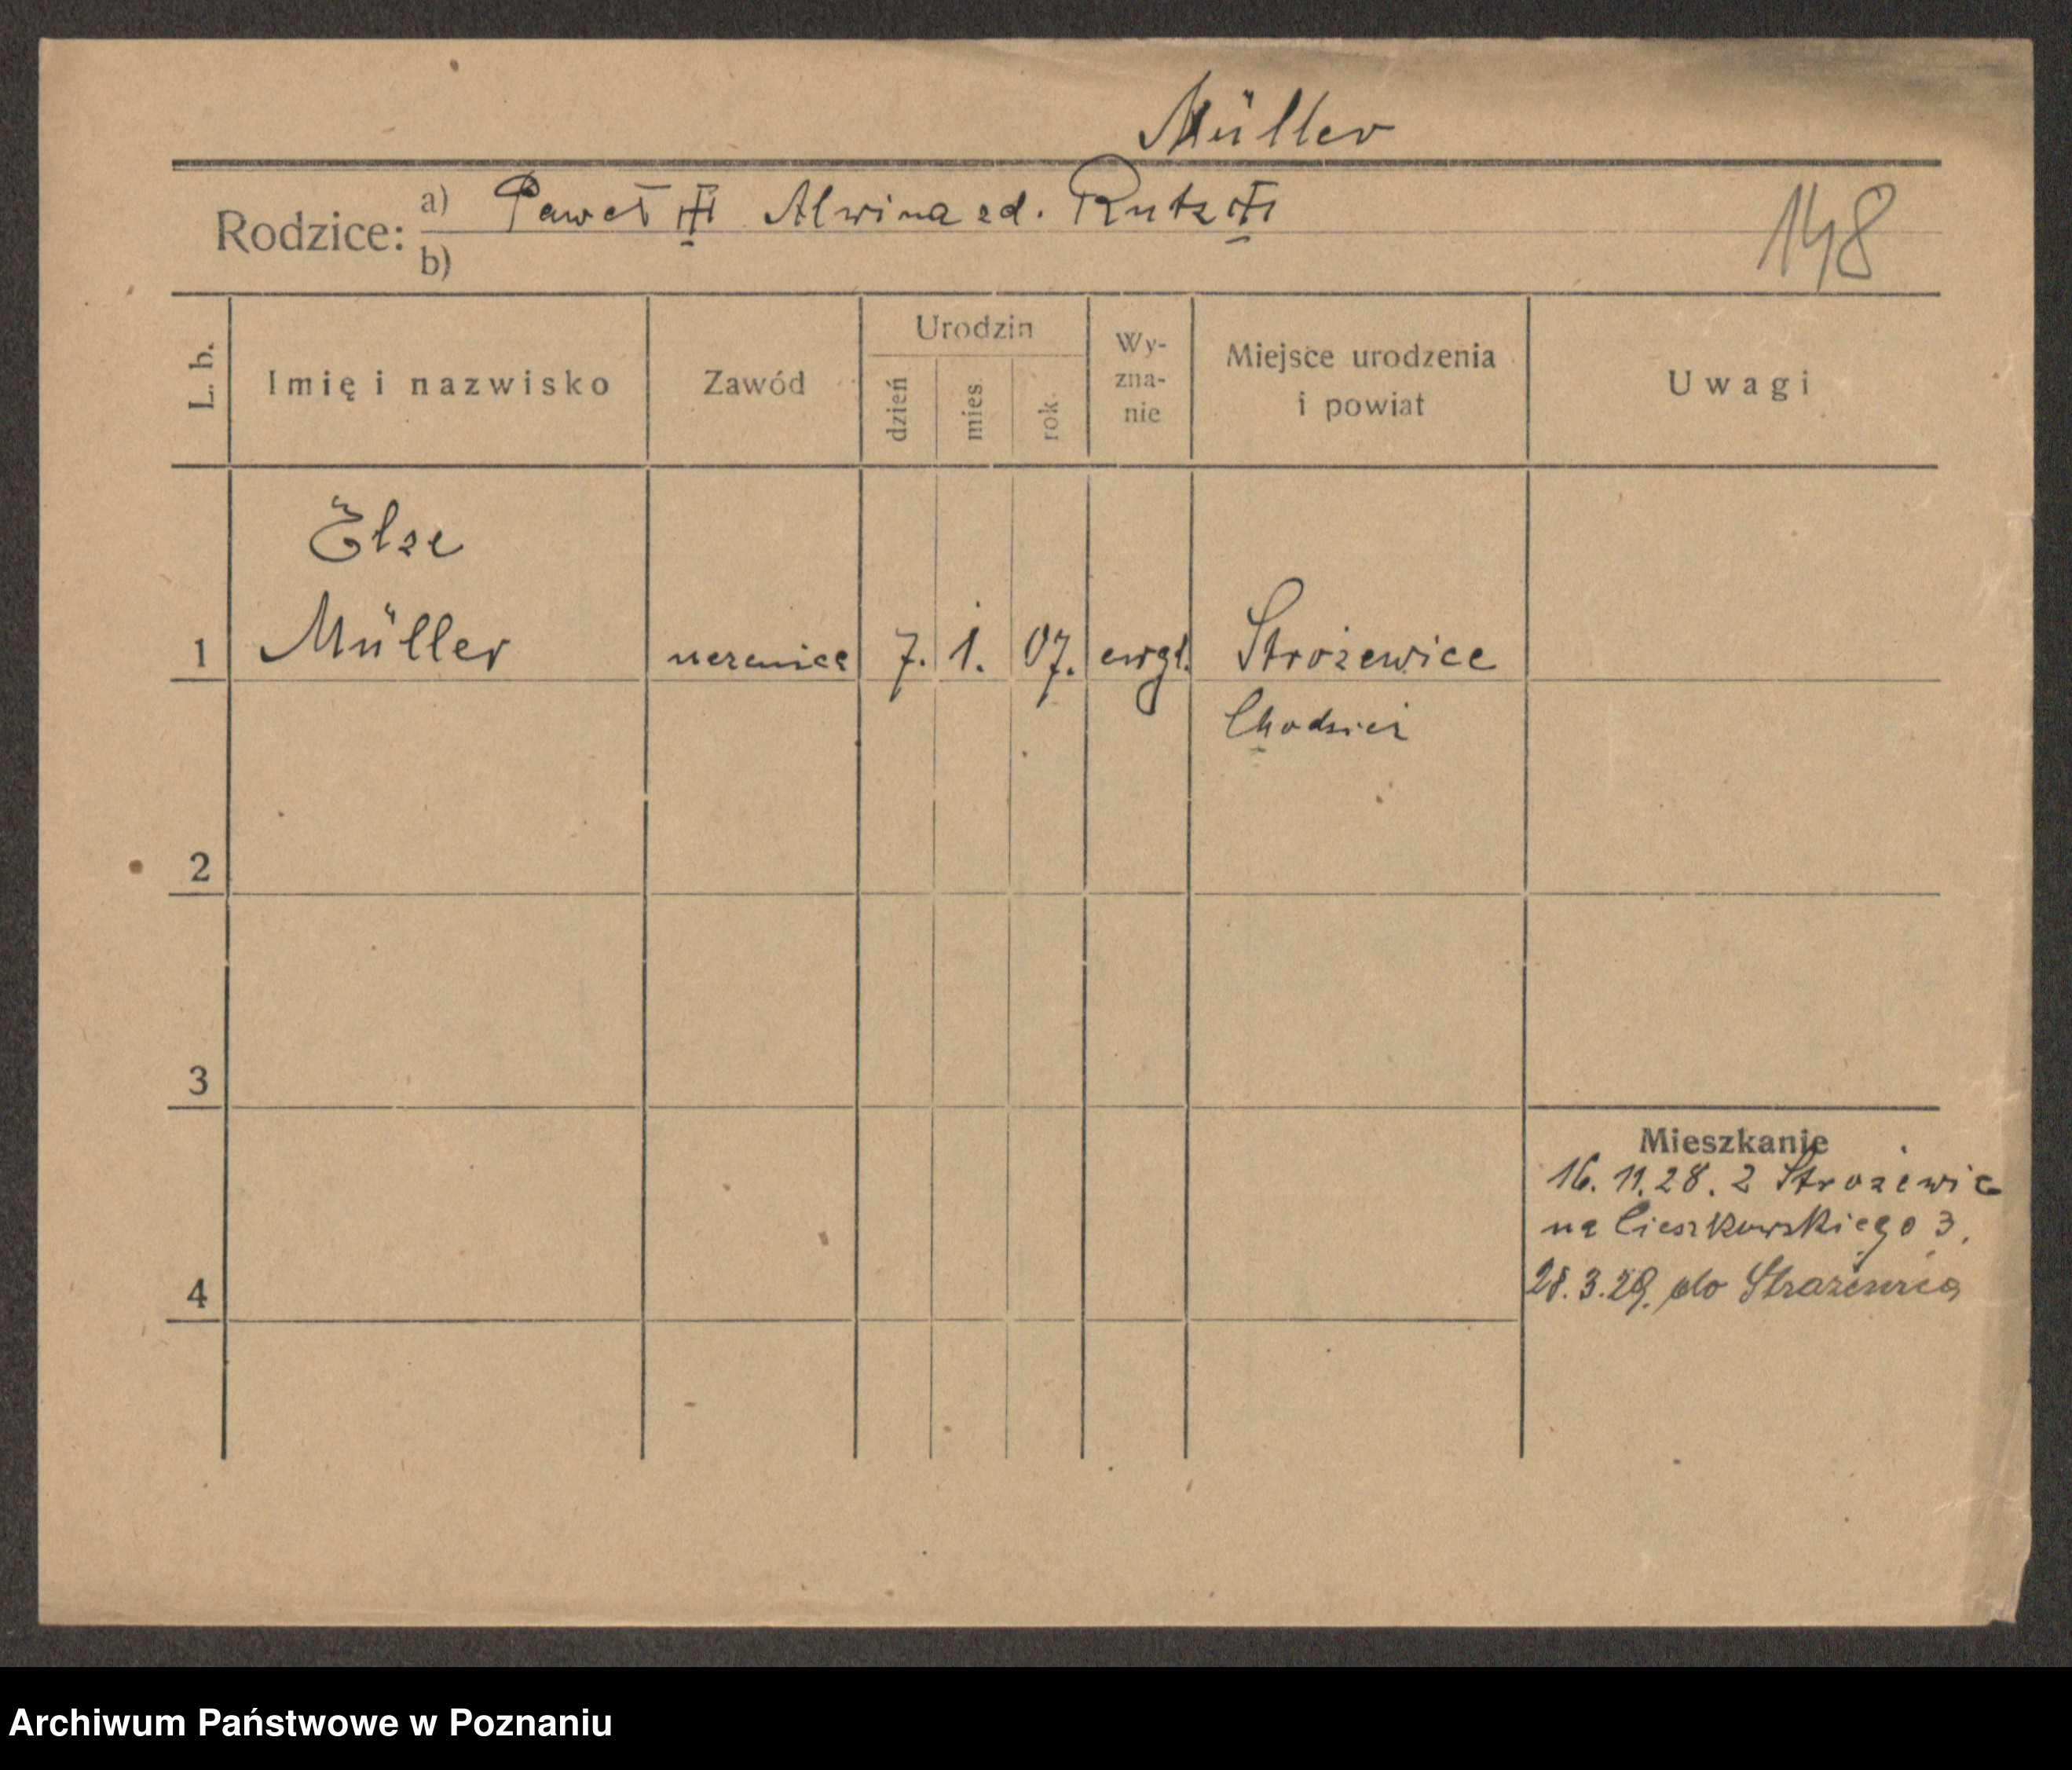 Müller
Rodzice: a) Paweł Alwina zd. Rutz
b)
148
L. b. Imię i nazwisko Zawód Urodzin dzień mies. rok. Wy-zna-nie Miejsce urodzenia i powiat Uwagi
Else
1 Müller uczenica 7. 1. 07. ewgl. Strożewice
Chodzież
2
3
Mieszkanie
16. 11. 28. z Strożewic
na Cieszkowskiego 3.
28. 3. 29. do Strożewic
4
Archiwum Państwowe w Poznaniu